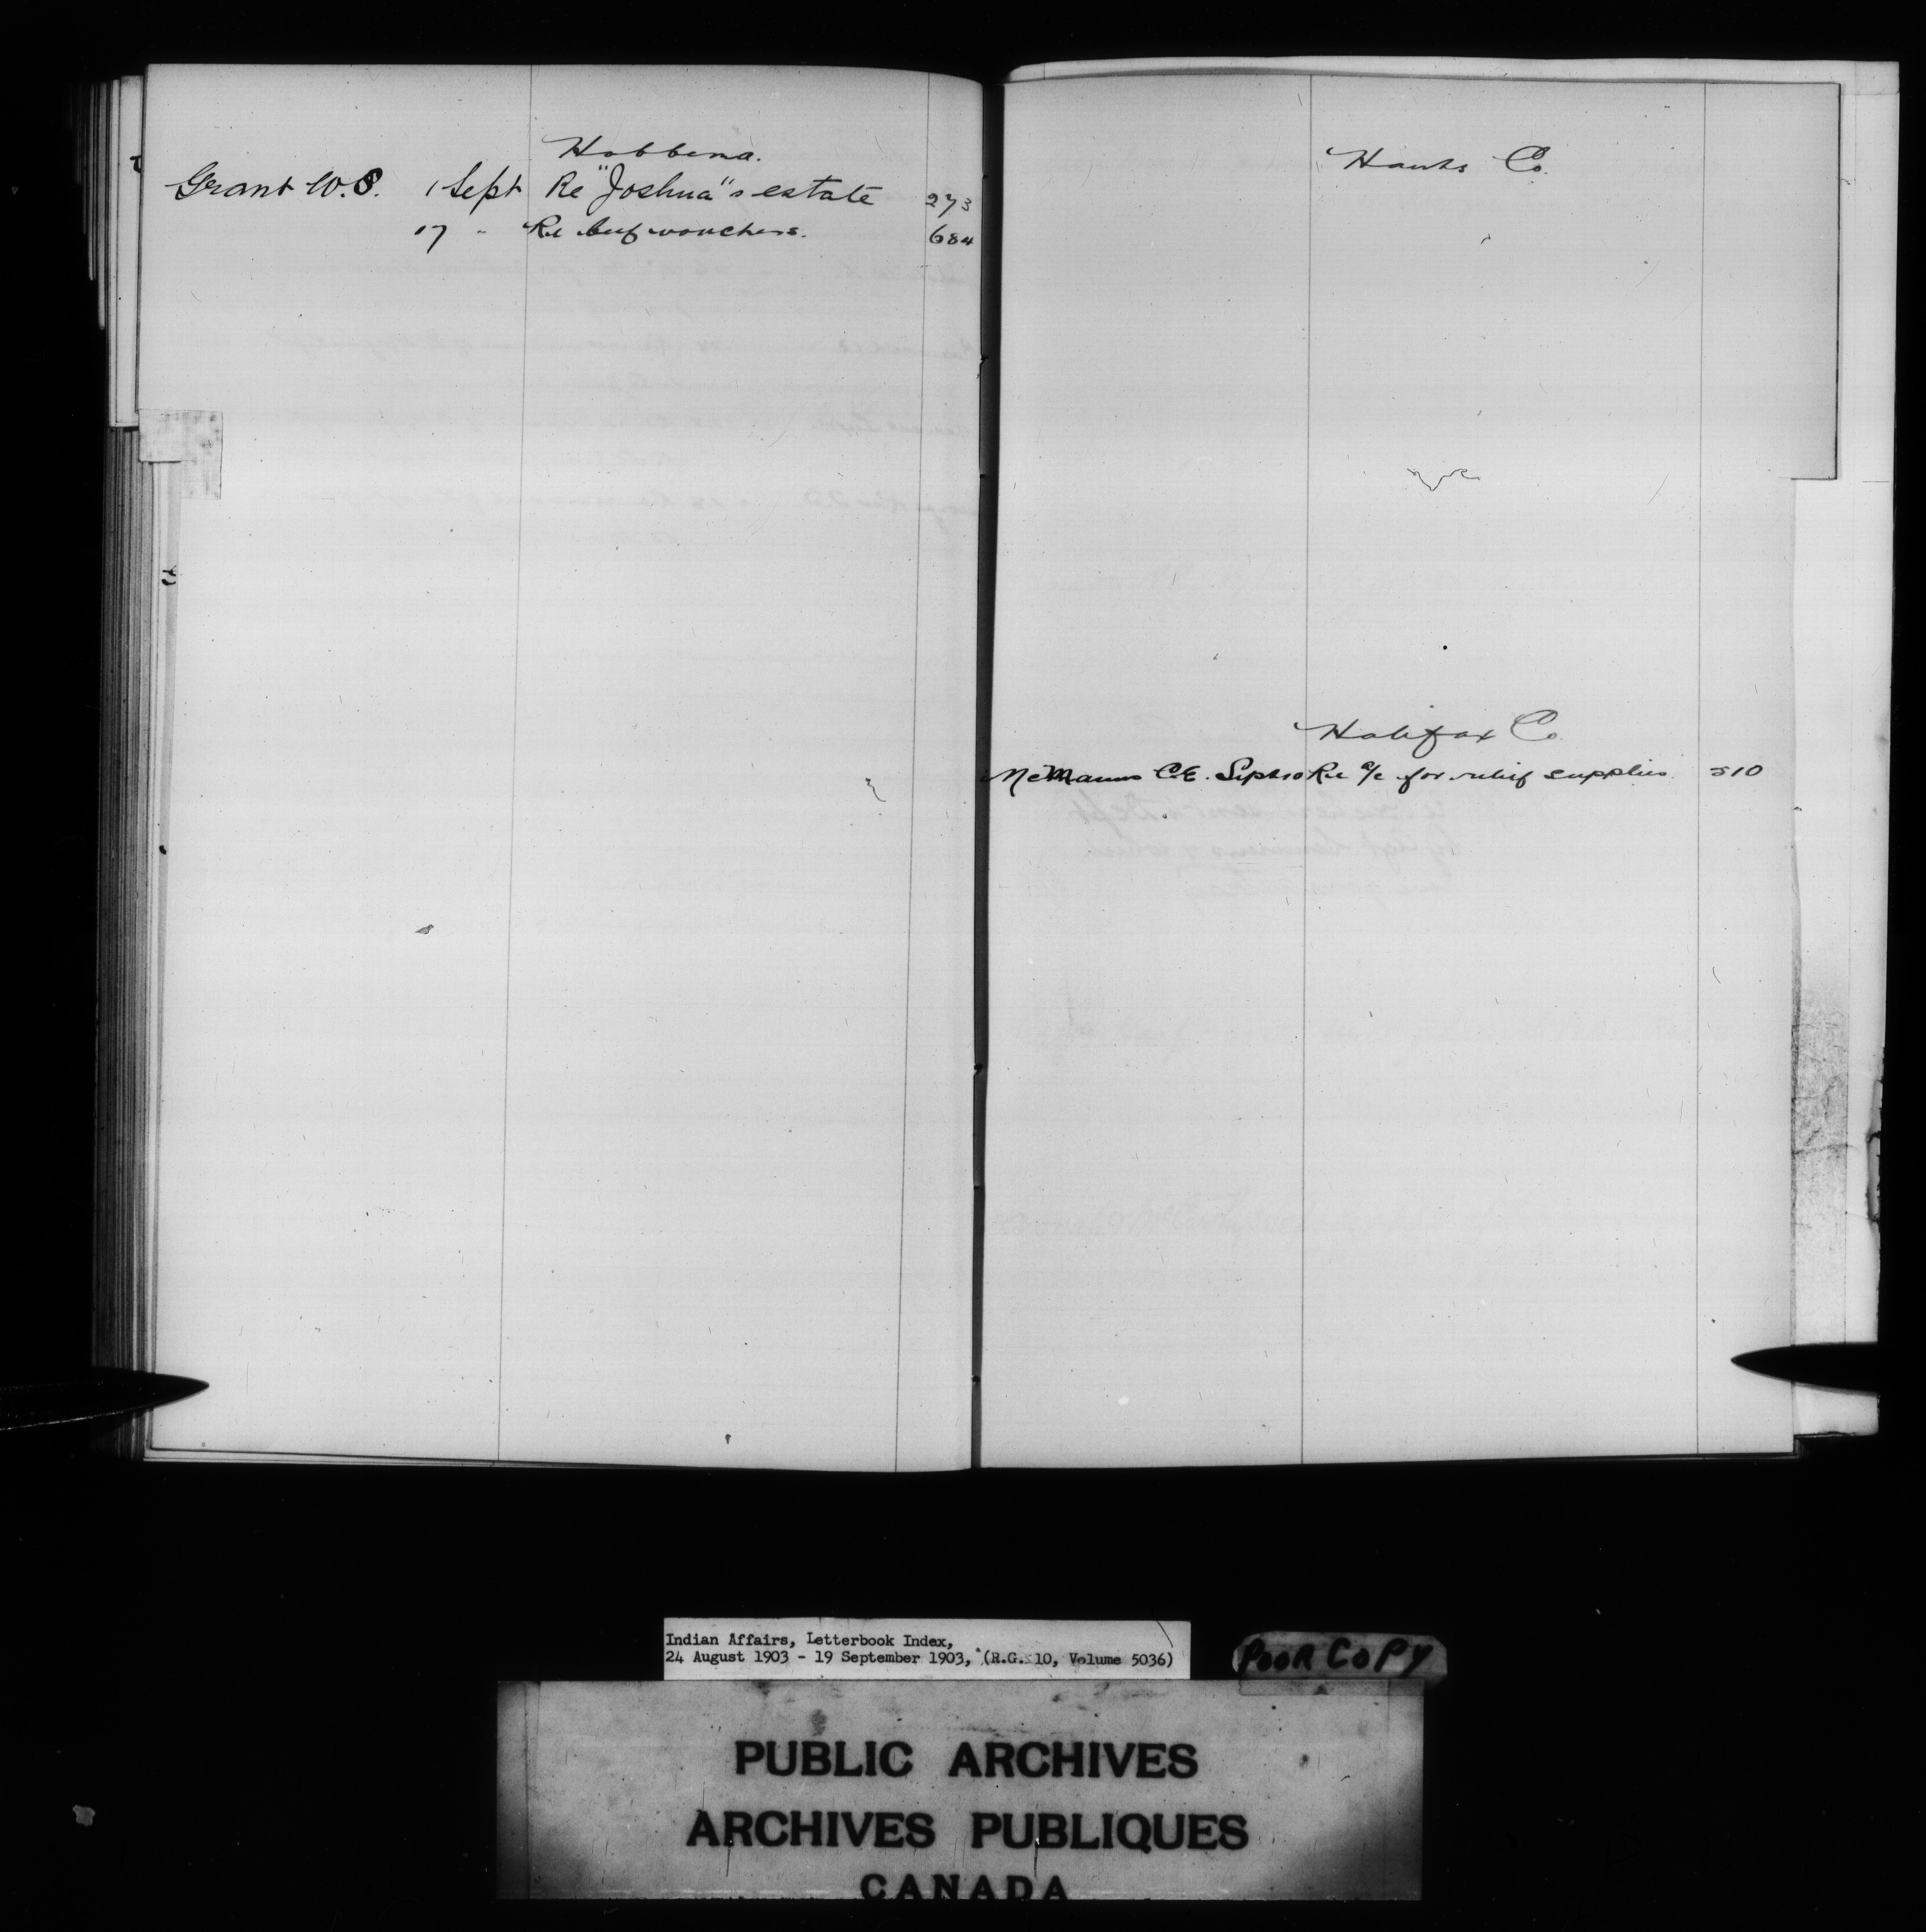 Hobbema.
Grant W.S. 1 Sept Re "Joshua"s estate 273
17 " Re beef vouchers. 684
Hants Co.
Halifax Co.
McManus C.E. Sept 10 Re a/c for relief supplies. 510
Indian Affairs, Letterbook Index,
24 August 1903 - 19 September 1903, (R.G. 10, Volume 5036)
POOR COPY
PUBLIC ARCHIVES
ARCHIVES PUBLIQUES
CANADA